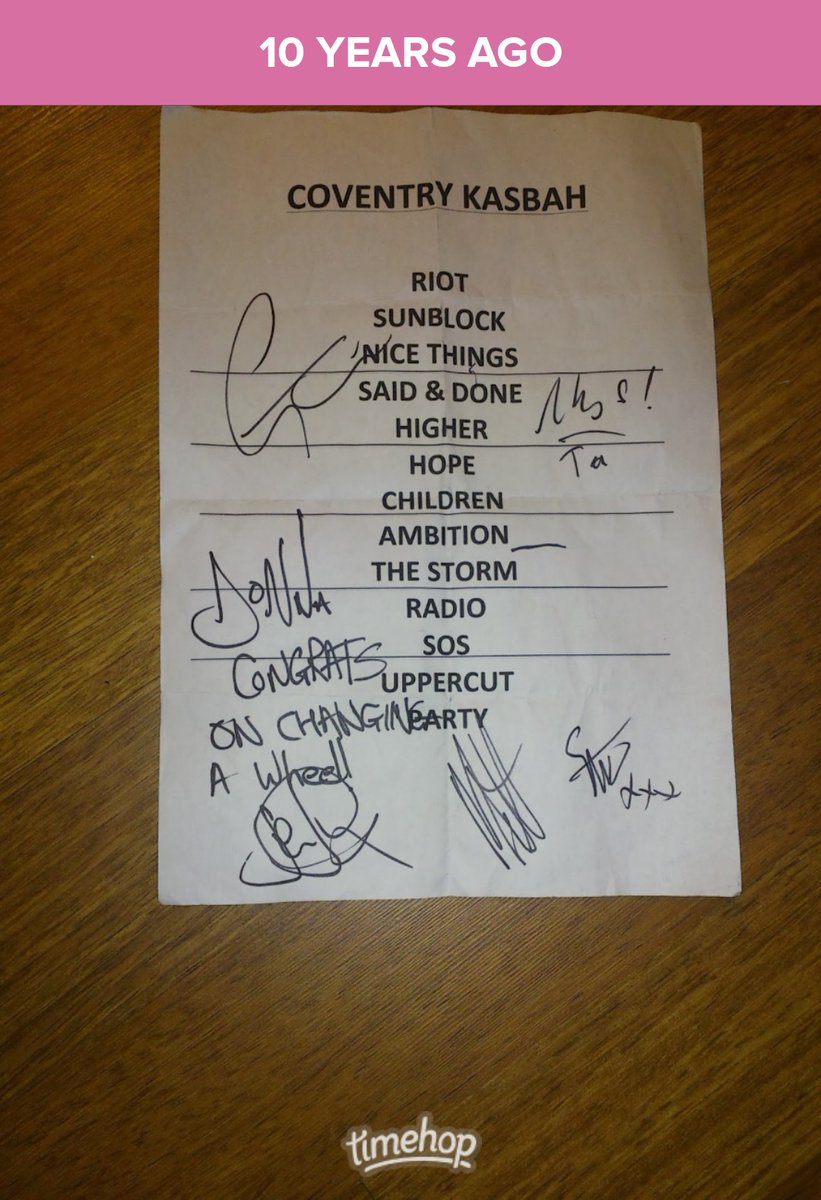 10 YEARS AGO
COVENTRY KASBAH
RIOT
SUNBLOCK
NICE THINGS
SAID & DONE
HIGHER
HOPE
Ta
CHILDREN
AMBITION
THE STORM
RADIO
SOS
UPPERCUT
PARTY
DONNA
CONGRATS
ON CHANGING
A WHEEL
timehop